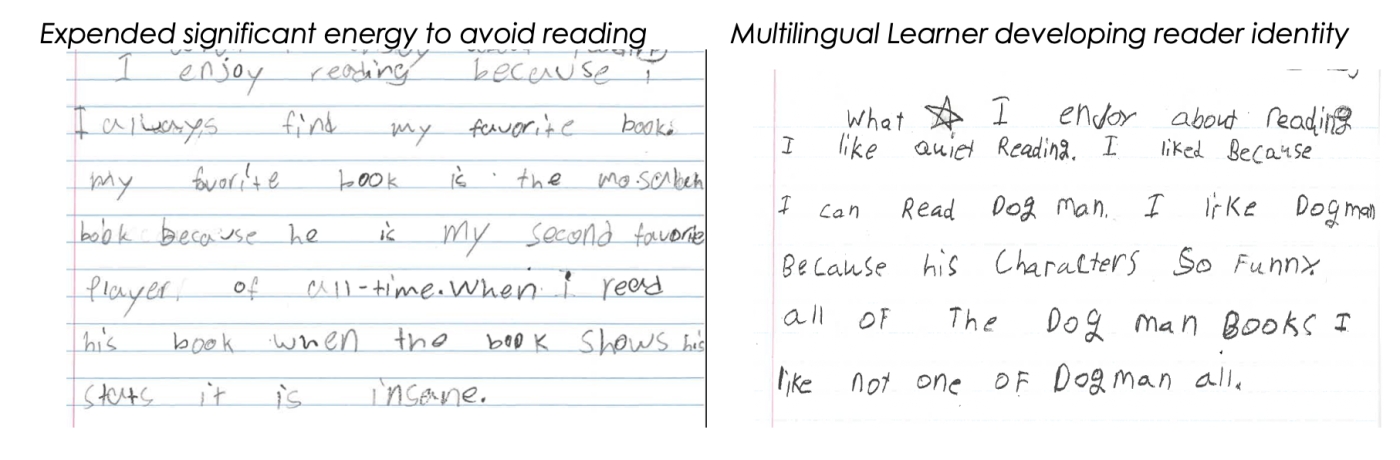 Expended significant energy to avoid reading
I enjoy reading because
I always find my favorite book.
my favorite book is the mo.salah
book because he is my second favorite
player of all-time. When I read
his book when the book shows his
stats it is insane.
Multilingual Learner developing reader identity
What I enjoy about Reading
I like quiet Reading. I liked Because
I can Read Dog man. I like Dogman
Because his Characters So Funny
all OF The Dog man Books I
like not one OF Dogman all.